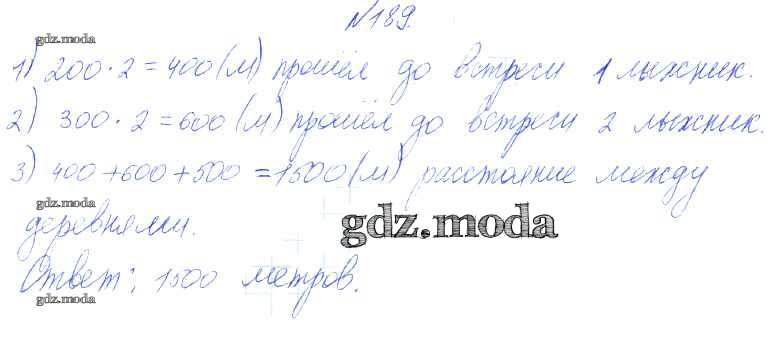 №189.
gdz.moda
1) 200·2=400(м) прошёл до встречи 1 лыжник.
2) 300·2=600(м) прошёл до встречи 2 лыжник.
3) 400+600+500=1500(м) расстояние между
gdz.moda
деревнями.
gdz.moda
Ответ: 1500 метров.
gdz.moda